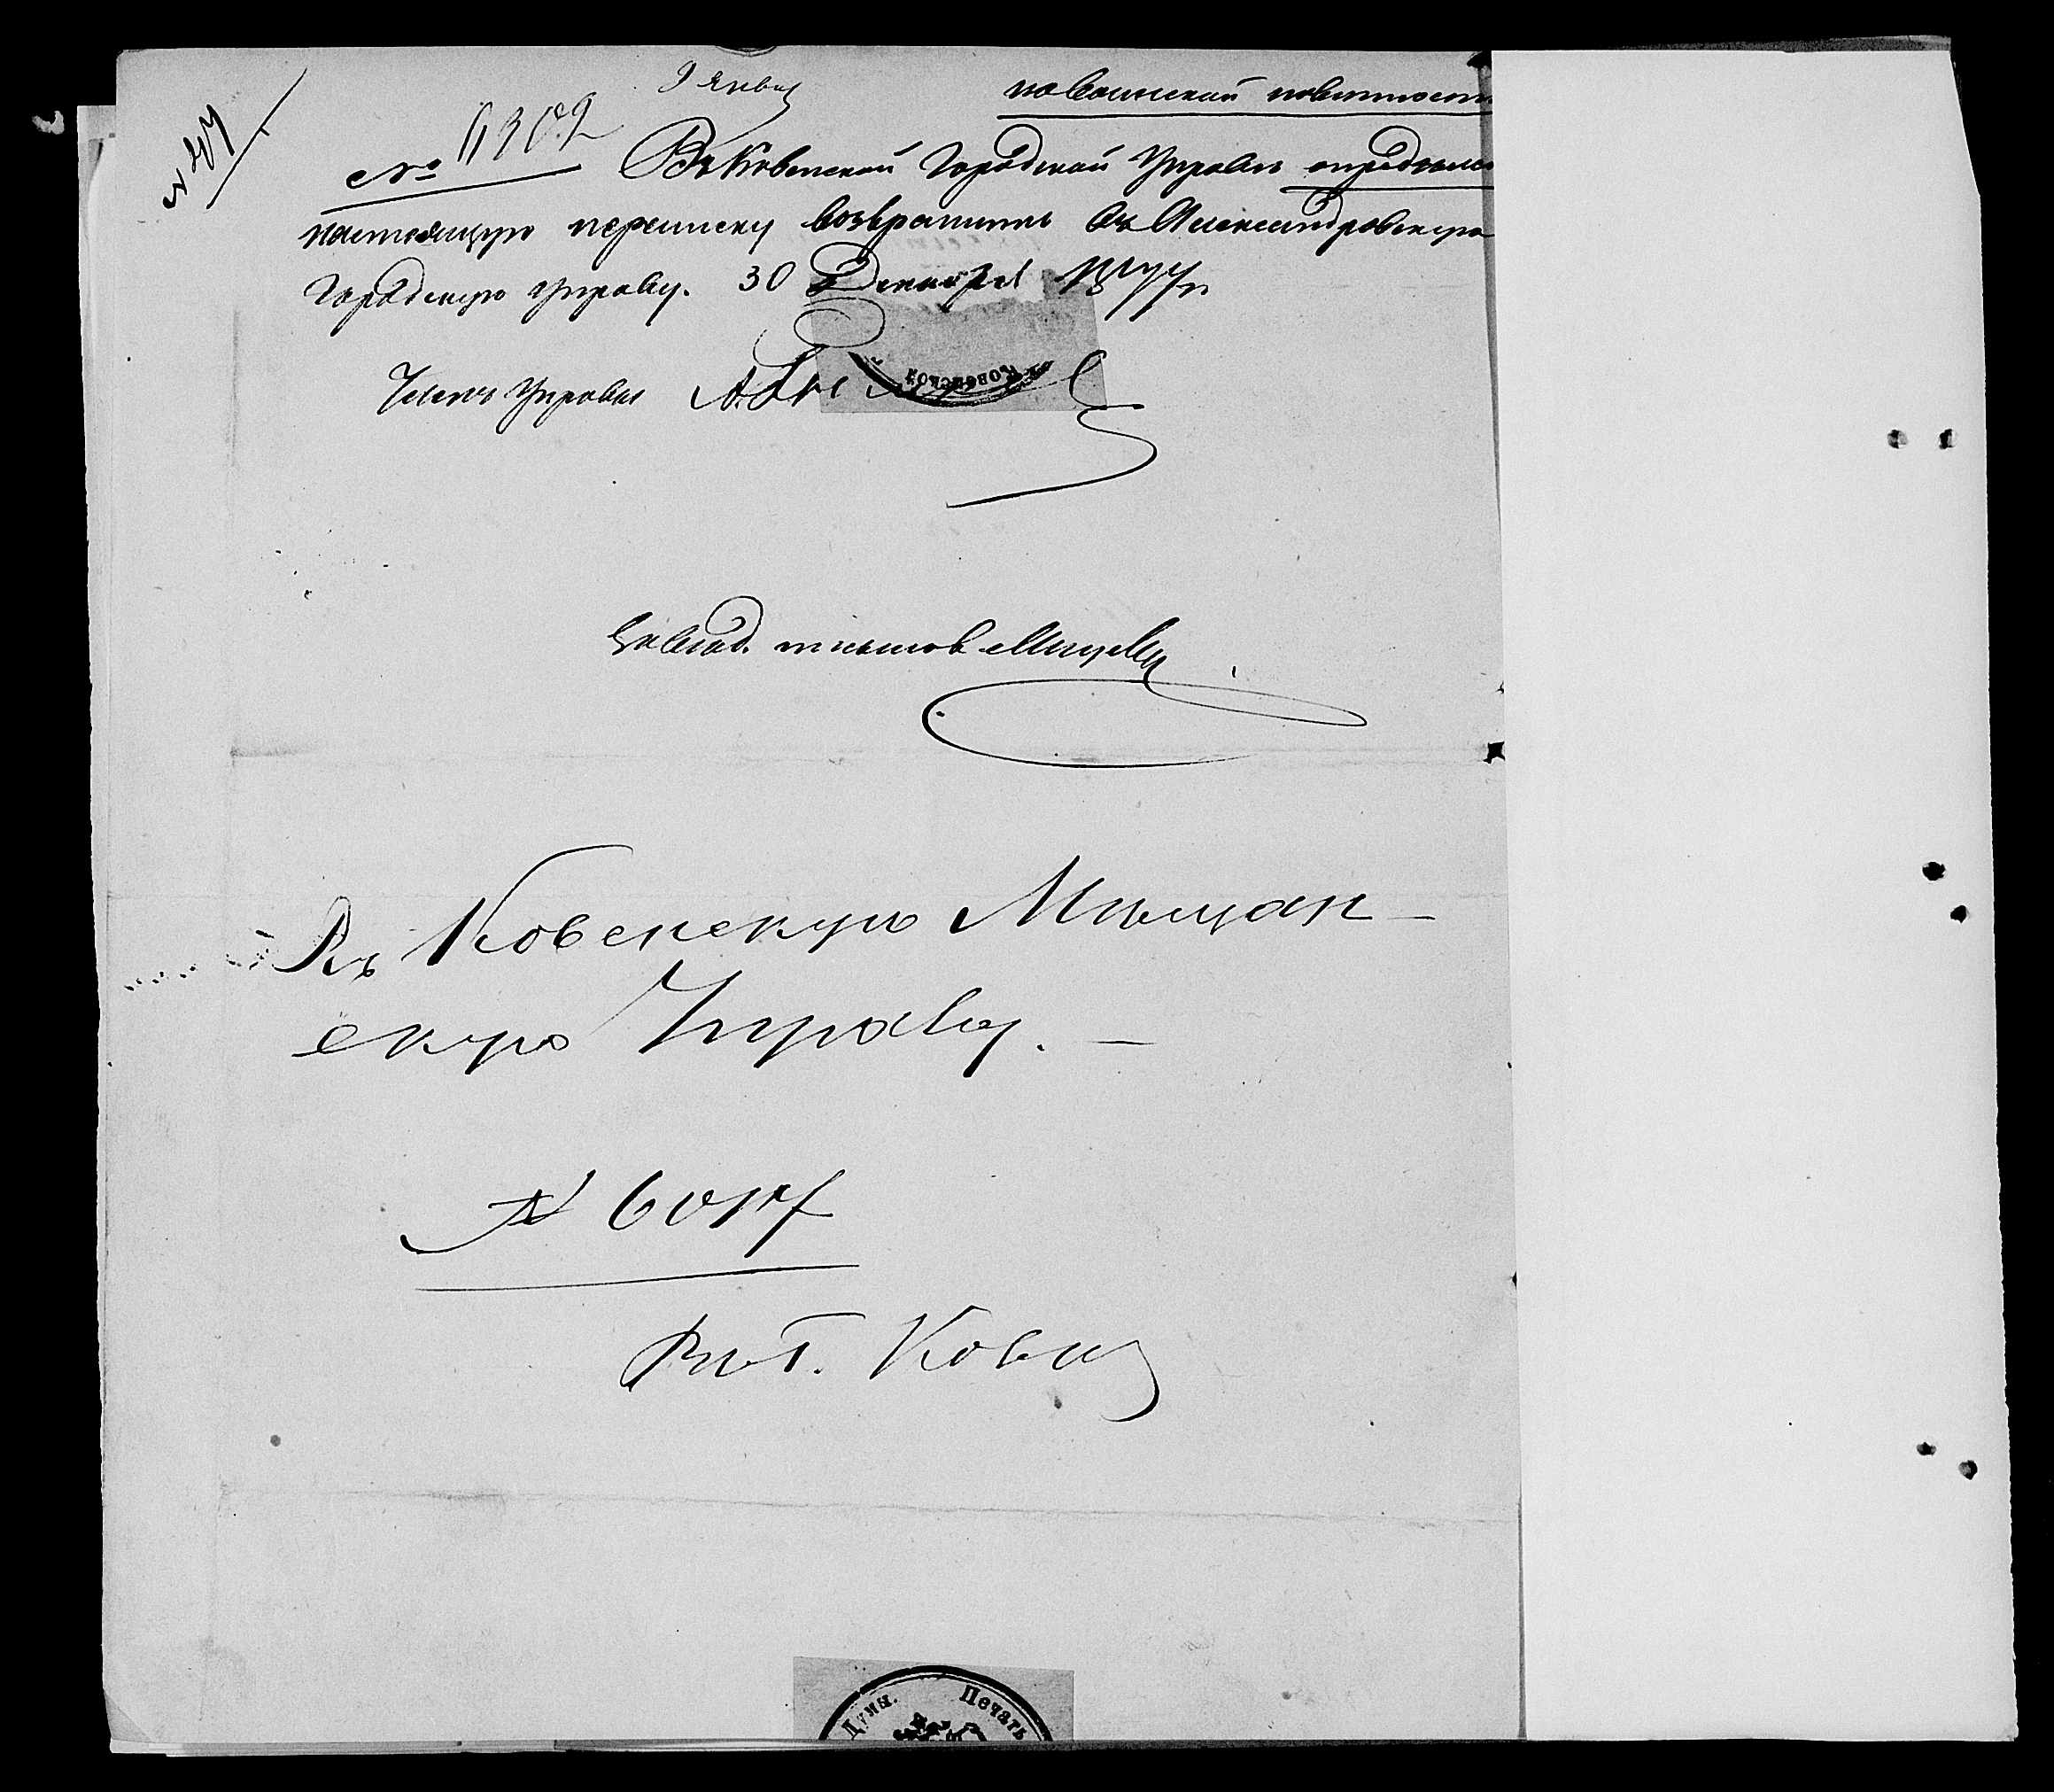 9 Январ
по воинской повинност
№ 6302 Въ Ковенской Городской Управѣ опредѣле
настоящую переписку возвратить въ Александровскую
Городскую управу. 30 Декабря 1877 г.
Членъ Управы А.
КОВЕНСКОЙ
Завѣд. столомъ
Въ Ковенскую Мѣщан-
скую Управу. —
№ 6017
Въ г. Ковну
Думы. Печать